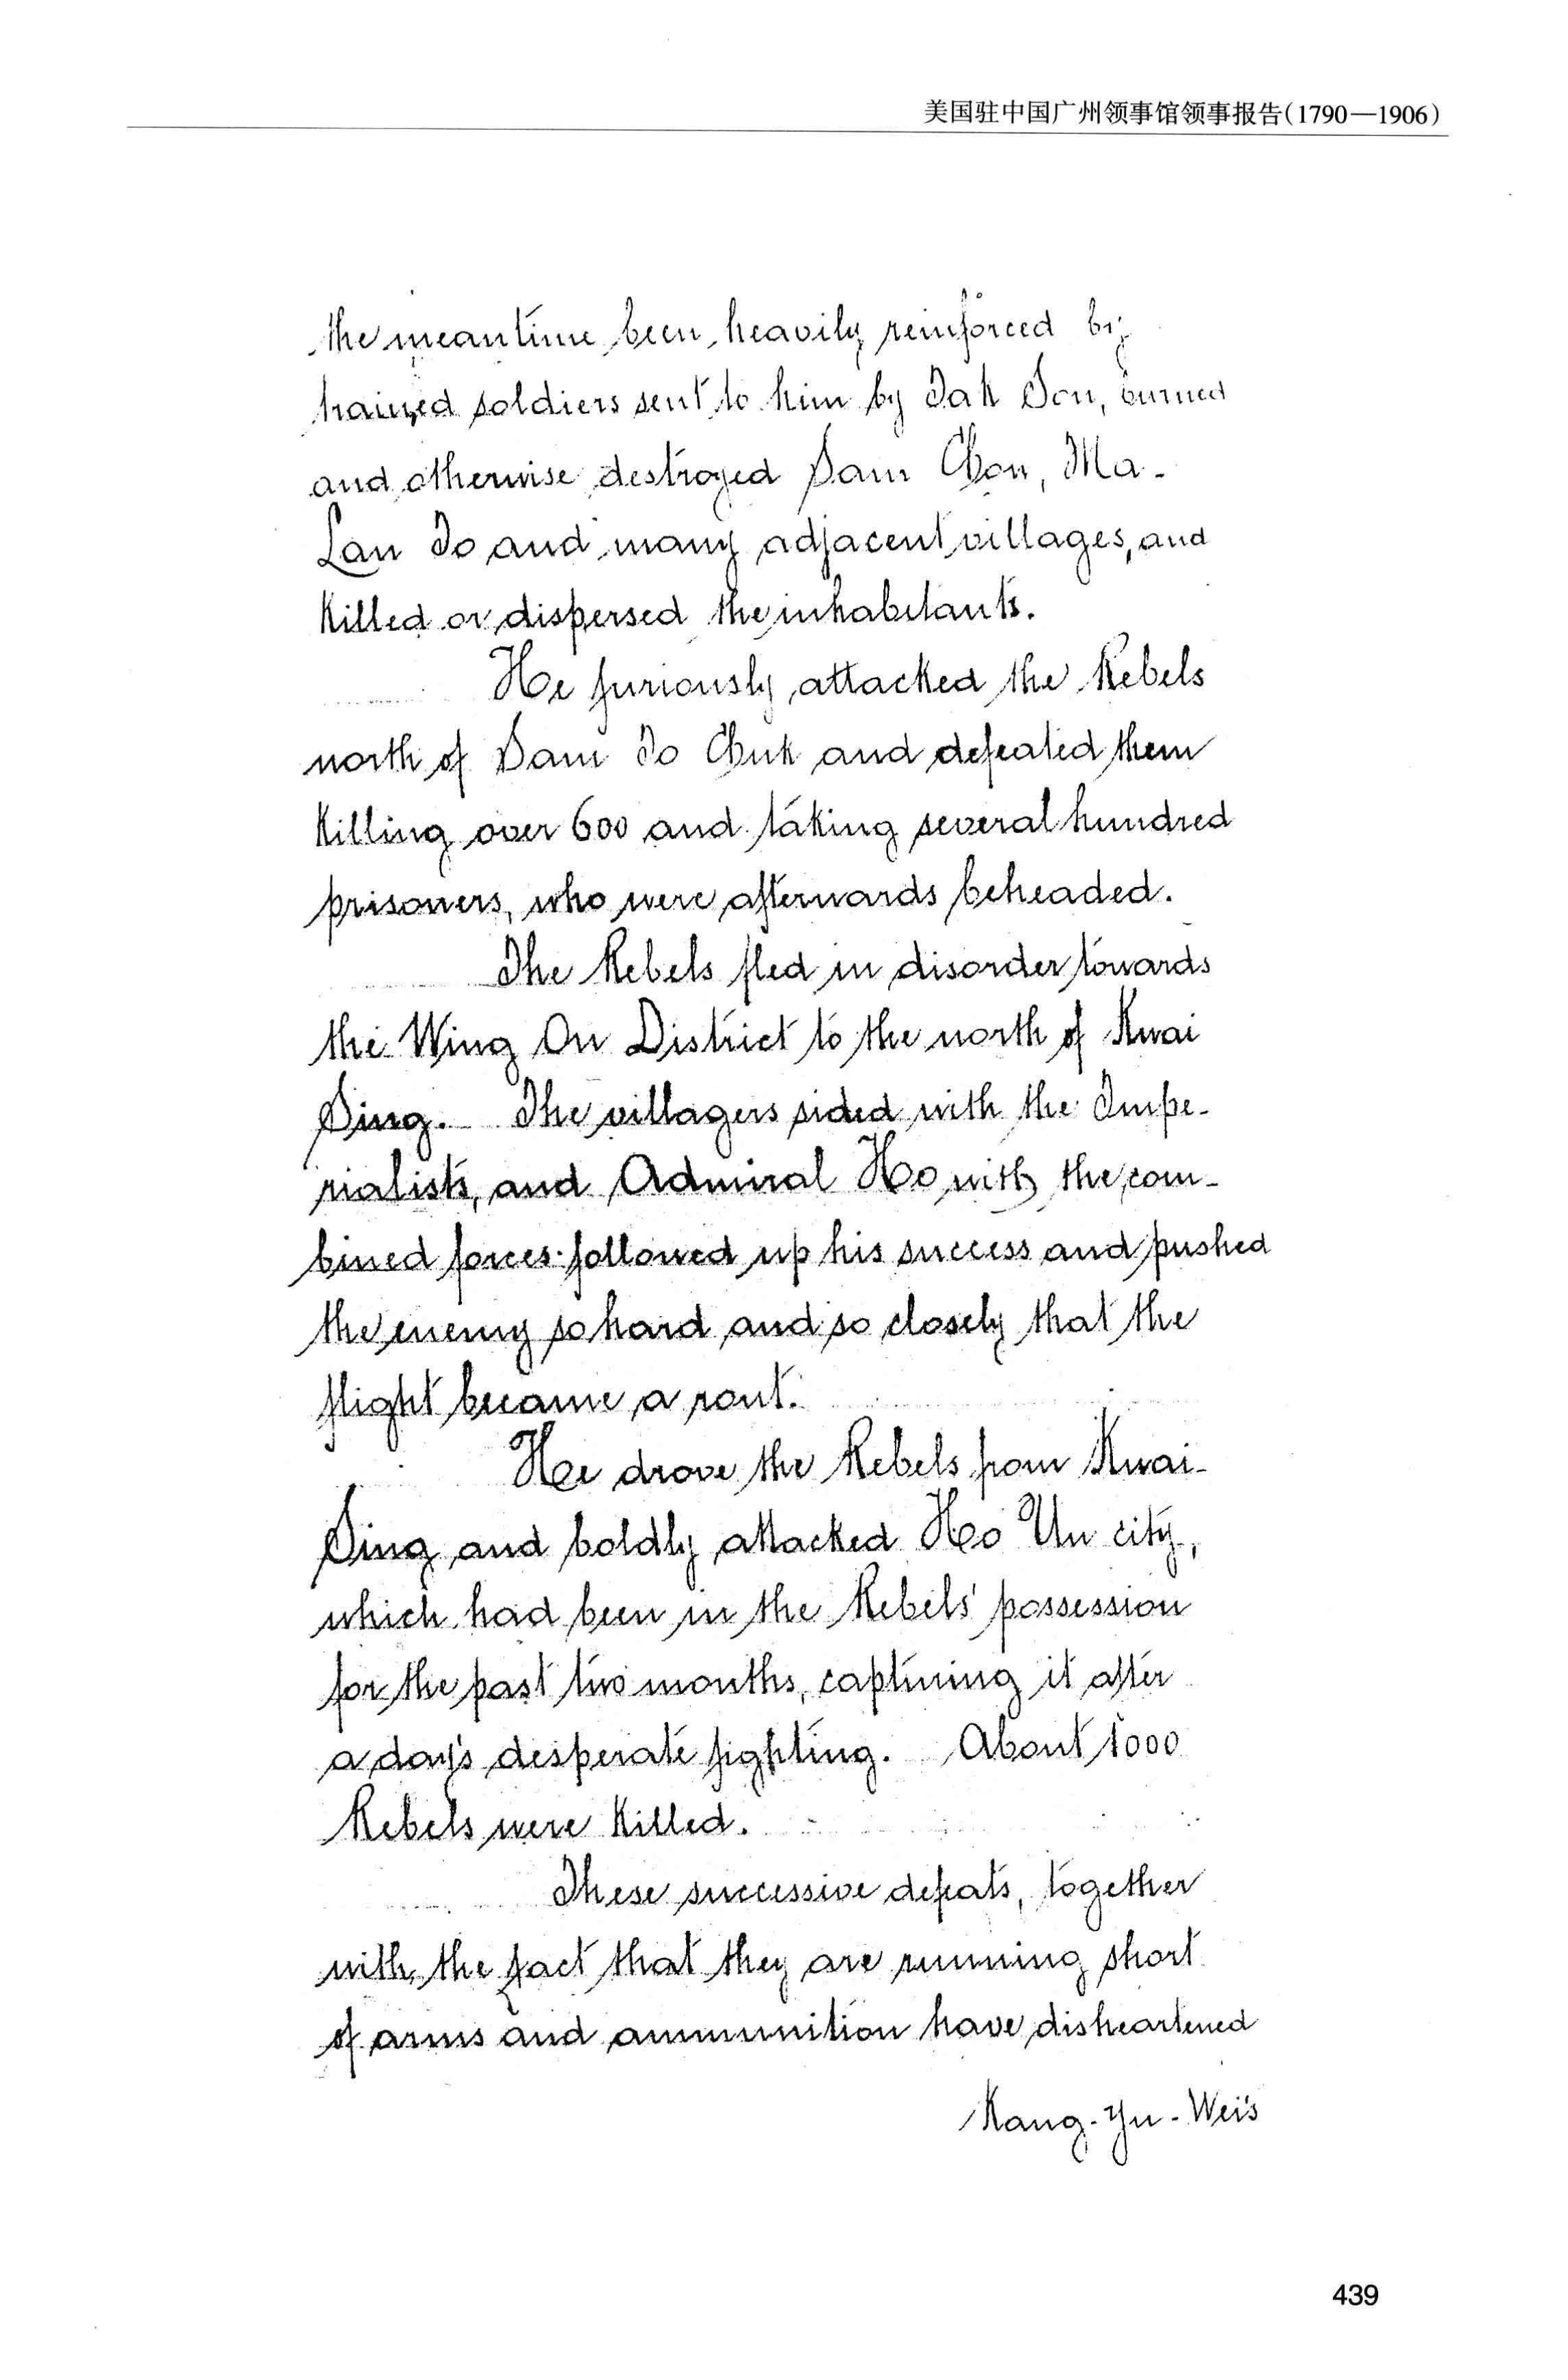 美国驻中国广州领事馆领事报告(1790—1906)
the meantime been heavily reinforced by
trained soldiers sent to him by Tak Son, burned
and otherwise destroyed Sam Chon, Ma-
Lan To and many adjacent villages, and
killed or dispersed the inhabitants.
He furiously attacked the Rebels
north of Sam To Chuk and defeated them
killing over 600 and taking several hundred
prisoners, who were afterwards beheaded.
The Rebels fled in disorder towards
the Wing On District to the north of Kwai
Sing. The villagers sided with the Impe-
rialists, and Admiral Ho with the com-
bined forces followed up his success and pushed
the enemy so hard and so closely that the
flight became a rout.
He drove the Rebels from Kwai-
Sing and boldly attacked Ho Un city,
which had been in the Rebels' possession
for the past two months, capturing it after
a day's desperate fighting. About 1000
Rebels were killed.
These successive defeats, together
with the fact that they are running short
of arms and ammunition have disheartened
Kang-Yu-Wei's
439